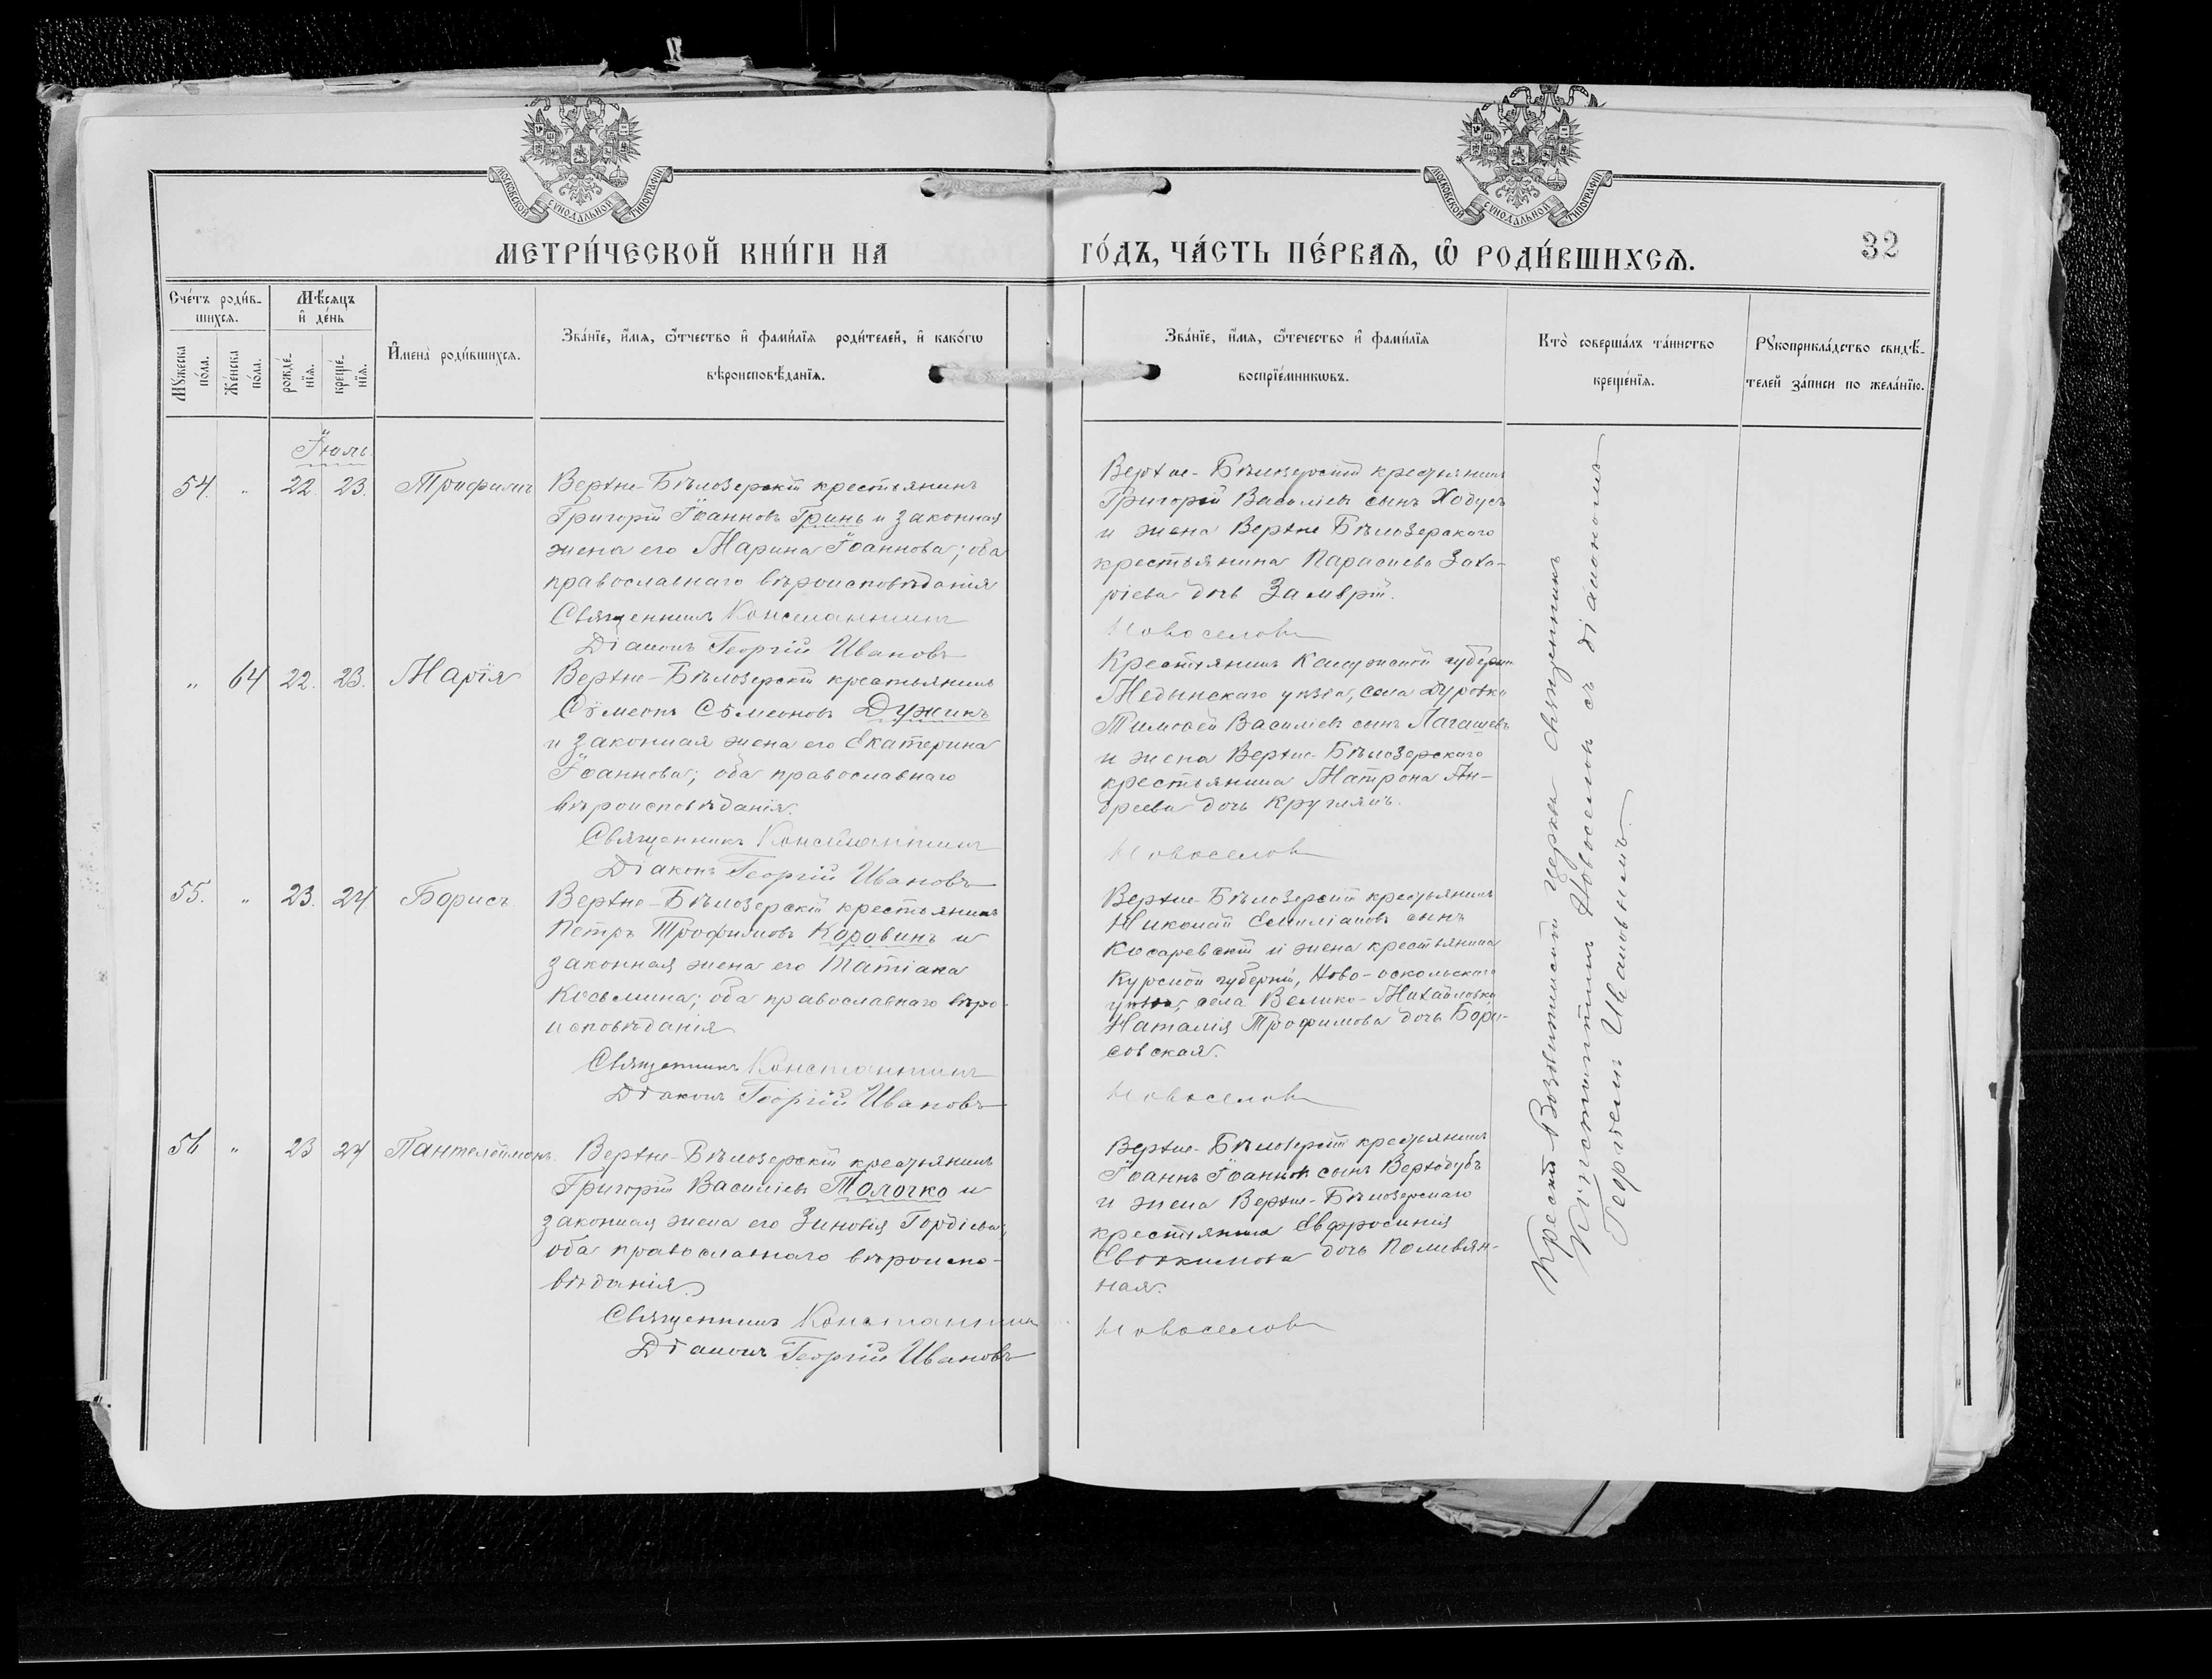 МОСКОВСКОЙ СѴНОДАЛЬНОЙ ТИПОГРАФІИ
МОСКОВСКОЙ СѴНОДАЛЬНОЙ ТИПОГРАФІИ
МЕТРИ́ЧЕСКОЙ КНИ́ГИ НА
ГО́ДЪ, ЧА́СТЬ ПЕ́РВАѦ, Ѽ РОДИ́ВШИХСѦ.
32
Сче́тъ роди́в-
шихсѧ.
Мѣ́сѧцъ
и҆ де́нь
Мꙋ́жеска
по́ла.
Же́нска
по́ла.
рожде́-
нїѧ.
креще́-
нїѧ.
И҆мена̀ роди́вшихсѧ.
Зва́нїе, и҆́мѧ, ѻ҆́тчество и҆ фами́лїѧ роди́телей, и҆ како́гѡ
вѣроисповѣ́данїѧ.
Зва́нїе, и҆́мѧ, ѻ҆те́чество и҆ фами́лїѧ
воспрїе́мникѡвъ.
Кто̀ соверша́лъ та́инство
креще́нїѧ.
Рꙋкоприкла́дство свидѣ́-
телей за́писи по жела́нїю.
Іюль
54. " 22. 23. Трофимъ
Верхне-Бѣлозерскій крестьянинъ
Григорій Іоанновъ Гринь и законная
жена его Марина Іоаннова; оба
православнаго вѣроисповѣданія
Священникъ Константинъ
Діаконъ Георгій Ивановъ
Верхне-Бѣлозерскій крестьянинъ
Григорій Василіевъ сынъ Ходусъ
и жена Верхне Бѣлозерскаго
крестьянина Параскева Заха-
ріева дочь Замврій.
Новоселовъ
" 64 22. 23. Марія
Верхне-Бѣлозерскій крестьянинъ
Сѵмеонъ Сѵмеоновъ Дужикъ
и законная жена его Екатерина
Іоаннова; оба православнаго
вѣроисповѣданія.
Священникъ Константинъ
Діаконъ Георгій Ивановъ
Крестьянинъ Калужской губерніи
Медынскаго уѣзда, села
Тимофей Василіевъ сынъ
и жена Верхне-Бѣлозерскаго
крестьянина Матрона Ан-
дреева дочь Круглякъ.
Новоселовъ
55. " 23. 24 Борисъ.
Верхне-Бѣлозерскій крестьянинъ
Петръ Трофимовъ Коровинъ и
законная жена его Татіана
Косьмина; оба православнаго вѣро-
исповѣданія
Священникъ Константинъ
Діаконъ Георгій Ивановъ
Верхне-Бѣлозерскій крестьянинъ
Николай Емиліановъ сынъ
Косаревскій и жена крестьянина
Курской губерніи, Ново-оскольскаго
уѣзда, села Велико-Михайловки
Наталія Трофимова дочь Бори-
совская.
Новоселовъ
56 " 23 24 Пантелеймонъ.
Верхне-Бѣлозерскій крестьянинъ
Григорій Василіевъ Толочко и
законная жена его Зиновія Гордіева;
оба православнаго вѣроиспо-
вѣданія.
Священникъ Константинъ
Діаконъ Георгій Ивановъ
Верхне-Бѣлозерскій крестьянинъ
Іоаннъ Іоанновъ сынъ Верходубъ
и жена Верхне-Бѣлозерскаго
крестьянина Евфросинія
Евдокимова дочь Поливян-
ная.
Новоселовъ
Кресто-Воздвиженской церкви священникъ
Константинъ Новоселовъ съ діакономъ
Георгіемъ Ивановымъ.